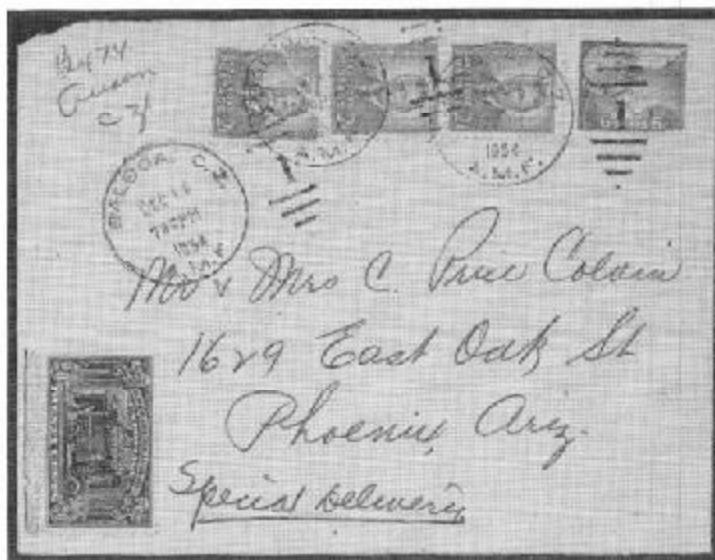 Box 474
Ancon
CZ
BALBOA, C.Z.
DEC 16
7 PM
1954
A.M.F.
A.M.F.
1954
A.M.F.
Mr & Mrs C. Price Colvin
1629 East Oak St
Phoenix, Ariz.
Special Delivery